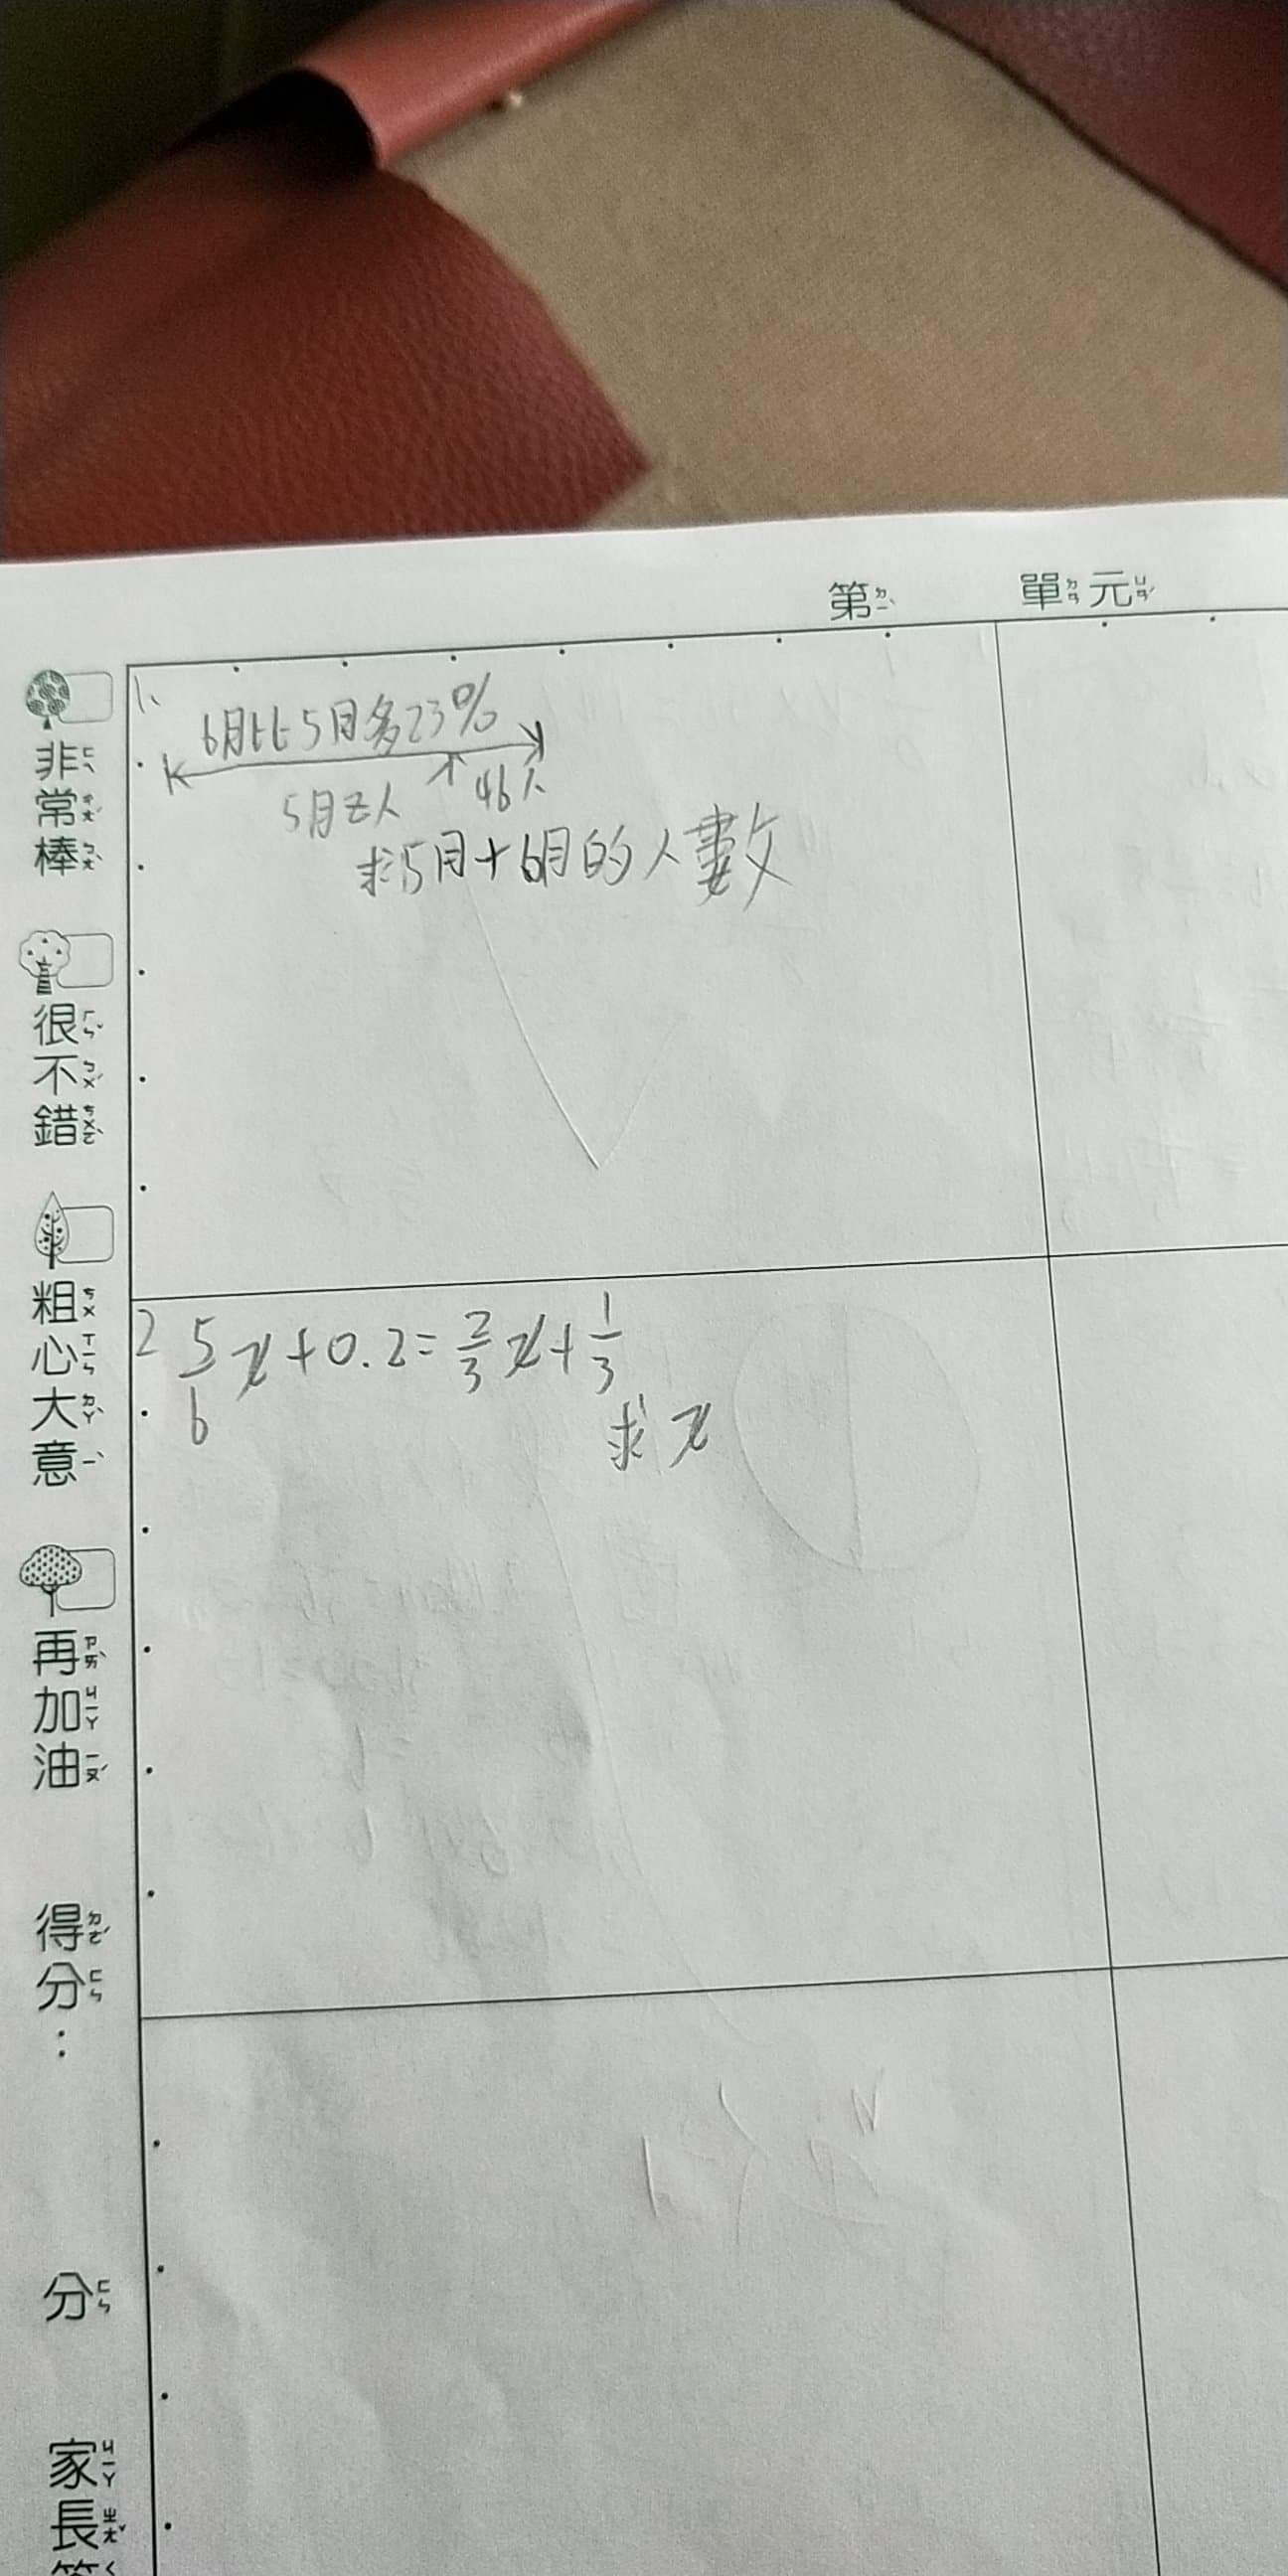 第ㄉㄧˋ 單ㄉㄢ元ㄩㄢˊ
1、
6月比5月多23%
5月z人 46人
求5月+6月的人數
2 5/6 x+0.2=2/3 x+1/3
求x
非ㄈㄟ常ㄔㄤˊ棒ㄅㄤˋ
很ㄏㄣˇ不ㄅㄨˊ錯ㄘㄨㄛˋ
粗ㄘㄨ心ㄒㄧㄣ大ㄉㄚˋ意ㄧˋ
再ㄗㄞˋ加ㄐㄧㄚ油ㄧㄡˊ
得ㄉㄜˊ分ㄈㄣ：
分ㄈㄣ
家ㄐㄧㄚ長ㄓㄤˇ